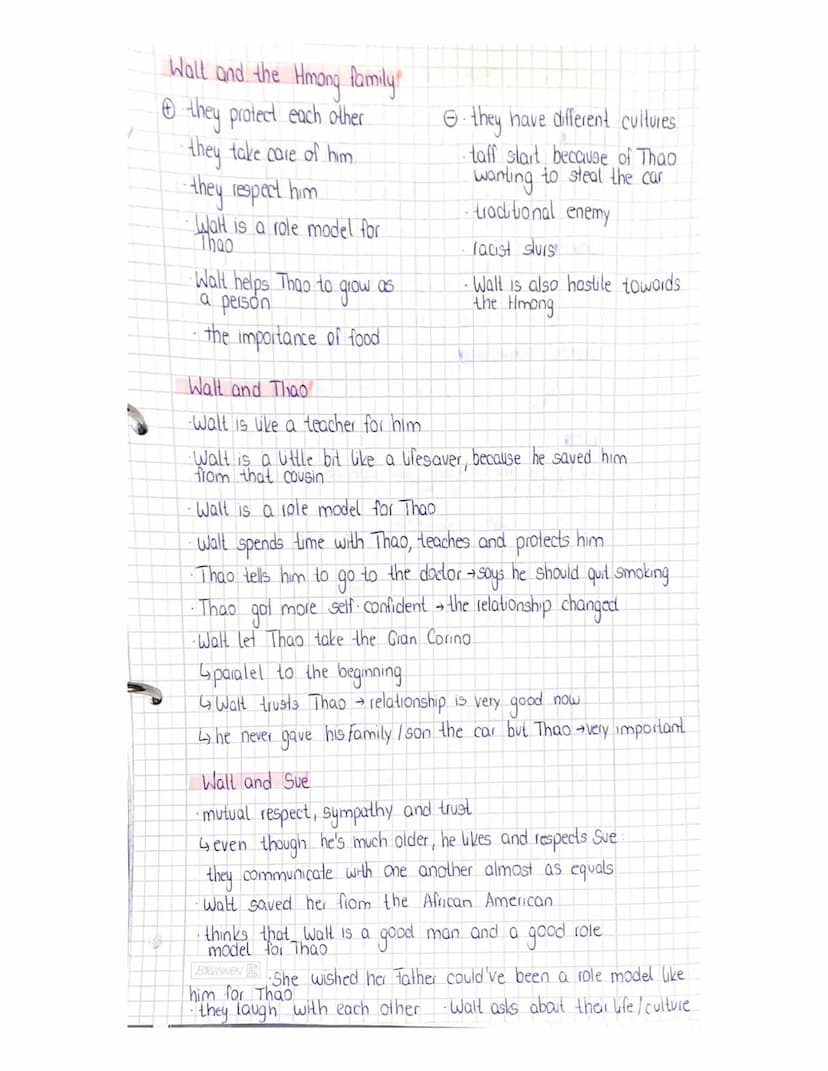 Walt and the Hmong family
⊕ they protect each other
· they take care of him
· they respect him
· Walt is a role model for
Thao
· Walt helps Thao to grow as
a person
· the importance of food
⊖ · they have different cultures
· taff start because of Thao
wanting to steal the car
· traditional enemy
· racist slurs
· Walt is also hostile towards
the Hmong
Walt and Thao
· Walt is like a teacher for him
· Walt is a little bit like a lifesaver, because he saved him
from that cousin
· Walt is a role model for Thao
· Walt spends time with Thao, teaches and protects him
· Thao tells him to go to the doctor → says he should quit smoking
· Thao got more self-confident → the relationship changed
· Walt let Thao take the Gran Corino
↳ paralel to the beginning
↳ Walt trusts Thao → relationship is very good now
↳ he never gave his family / son the car but Thao → very important
Walt and Sue
· mutual respect, sympathy and trust
↳ even though he's much older, he likes and respects Sue:
they communicate with one another almost as equals
· Walt saved her from the African American
· thinks that Walt is a good man and a good role
model for Thao
BRUNNEN
· She wished her father could've been a role model like
him for Thao
· they laugh with each other · Walt asks about their life / culture